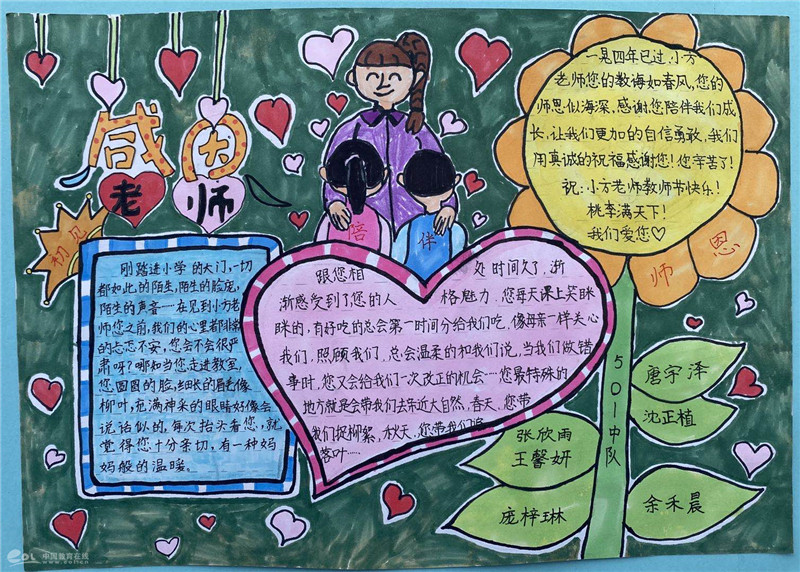 感恩
老师
初见
刚踏进小学的大门，一切
都如此的陌生，陌生的脸庞，
陌生的声音……在见到小方老
师您之前，我们的心里都非常
的忐忑不安，您会不会很严
肃呀？哪知当您走进教室，
您圆圆的脸，细长的眉毛像
柳叶，充满神采的眼睛好像会
说话似的，每次抬头看您，就
觉得您十分亲切，有一种妈
妈般的温暖。
陪伴
跟您相处时间久了，渐
渐感受到了您的人格魅力，您每天课上笑眯
眯的，有好吃的总会第一时间分给我们吃，像母亲一样关心
我们，照顾我们，总会温柔的和我们说，当我们做错
事时，您又会给我们一次改正的机会……您最特殊的
地方就是会带我们去亲近大自然，春天，您带
我们捉柳絮，秋天，您带我们
落叶……
一晃四年已过，小方
老师您的教诲如春风，您的
师恩似海深，感谢您陪伴我们成
长，让我们更加的自信勇敢，我们
用真诚的祝福感谢您！您辛苦了！
祝：小方老师教师节快乐！
桃李满天下！
我们爱您♡
师恩
501中队
唐宇泽
沈正植
张欣雨
王馨妍
庞梓琳
余禾晨
eol 中国教育在线